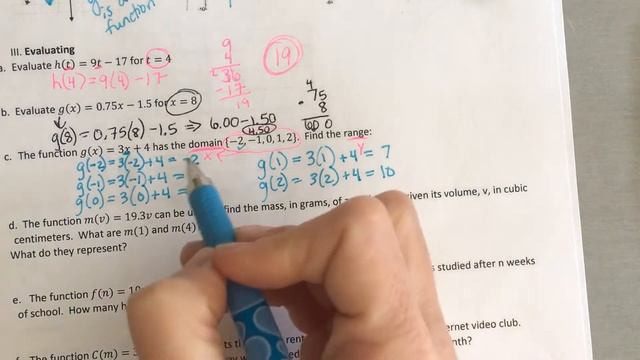 is a
function
III. Evaluating
a. Evaluate h(t) = 9t − 17 for t = 4
h(4) = 9(4) - 17
9
4
2 36
-17
19
19
b. Evaluate g(x) = 0.75x − 1.5 for x = 8
g(8) = 0.75(8) - 1.5 ⇒ 6.00 - 1.50
4.50
4
.75
8
600
c. The function g(x) = 3x + 4 has the domain {−2, −1, 0, 1, 2}. Find the range:
x
y
g(-2) = 3(-2) + 4 = -2
g(-1) = 3(-1) + 4 =
g(0) = 3(0) + 4 =
g(1) = 3(1) + 4 = 7
g(2) = 3(2) + 4 = 10
d. The function m(v) = 19.3v can be find the mass, in grams, of given its volume, v, in cubic
centimeters. What are m(1) and m(4)
What do they represent?
e. The function f(n) = studied after n weeks
of school. How many
The function C(m) = rnet video club.
nth?